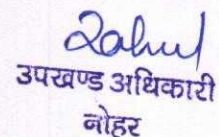 Rahul
उपखण्ड अधिकारी
नोहर